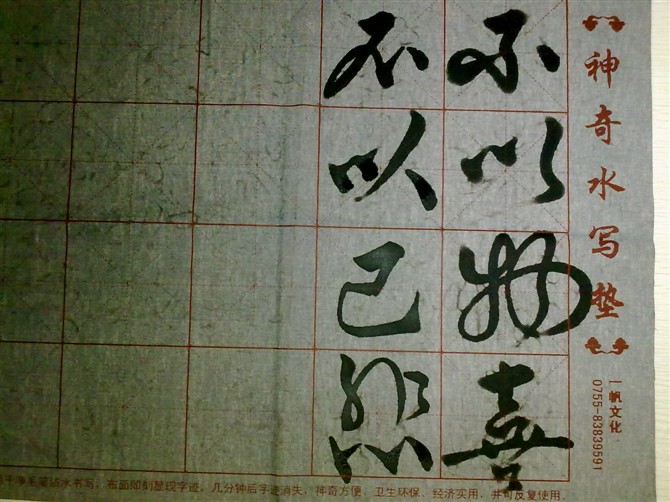 神奇水写垫
一帆文化
0755-83839591
不以物喜
不以己悲
干净毛笔沾水书写,布面即刻显现字迹,几分钟后字迹消失,神奇方便,卫生环保,经济实用,并可反复使用。